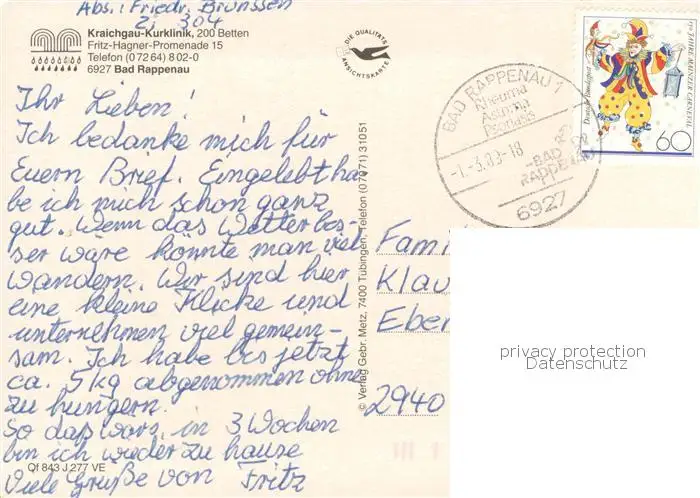 Abs.: Friedr. Brunssen
Zi 304
Kraichgau-Kurklinik, 200 Betten
Fritz-Hagner-Promenade 15
Telefon (0 72 64) 8 02-0
6927 Bad Rappenau
DIE QUALITÄTS
ANSICHTSKARTE
BAD RAPPENAU 1
Rheuma
Asthma
Psoriasis
-1.-3.89-18
BAD
RAPPENAU
6927
Deutsche Bundespost
150 JAHRE MAINZER CARNEVAL
60
Ihr Lieben!
Ich bedanke mich für
Euern Brief. Eingelebt ha-
be ich mich schon ganz
gut. Wenn das Wetter bes-
ser wäre könnte man viel
wandern. Wir sind hier
eine kleine Klicke und
unternehmen viel gemein-
sam. Ich habe bis jetzt
ca. 5 kg abgenommen ohne
zu hungern.
So daß wars, in 3 Wochen
bin ich wieder zu hause
Viele Grüße von Fritz
Qf 843 J 277 VE
© Verlag Gebr. Metz, 7400 Tübingen, Telefon (0 70 71) 3 10 51
Fami
Klau
Eber
2940
privacy protection
Datenschutz